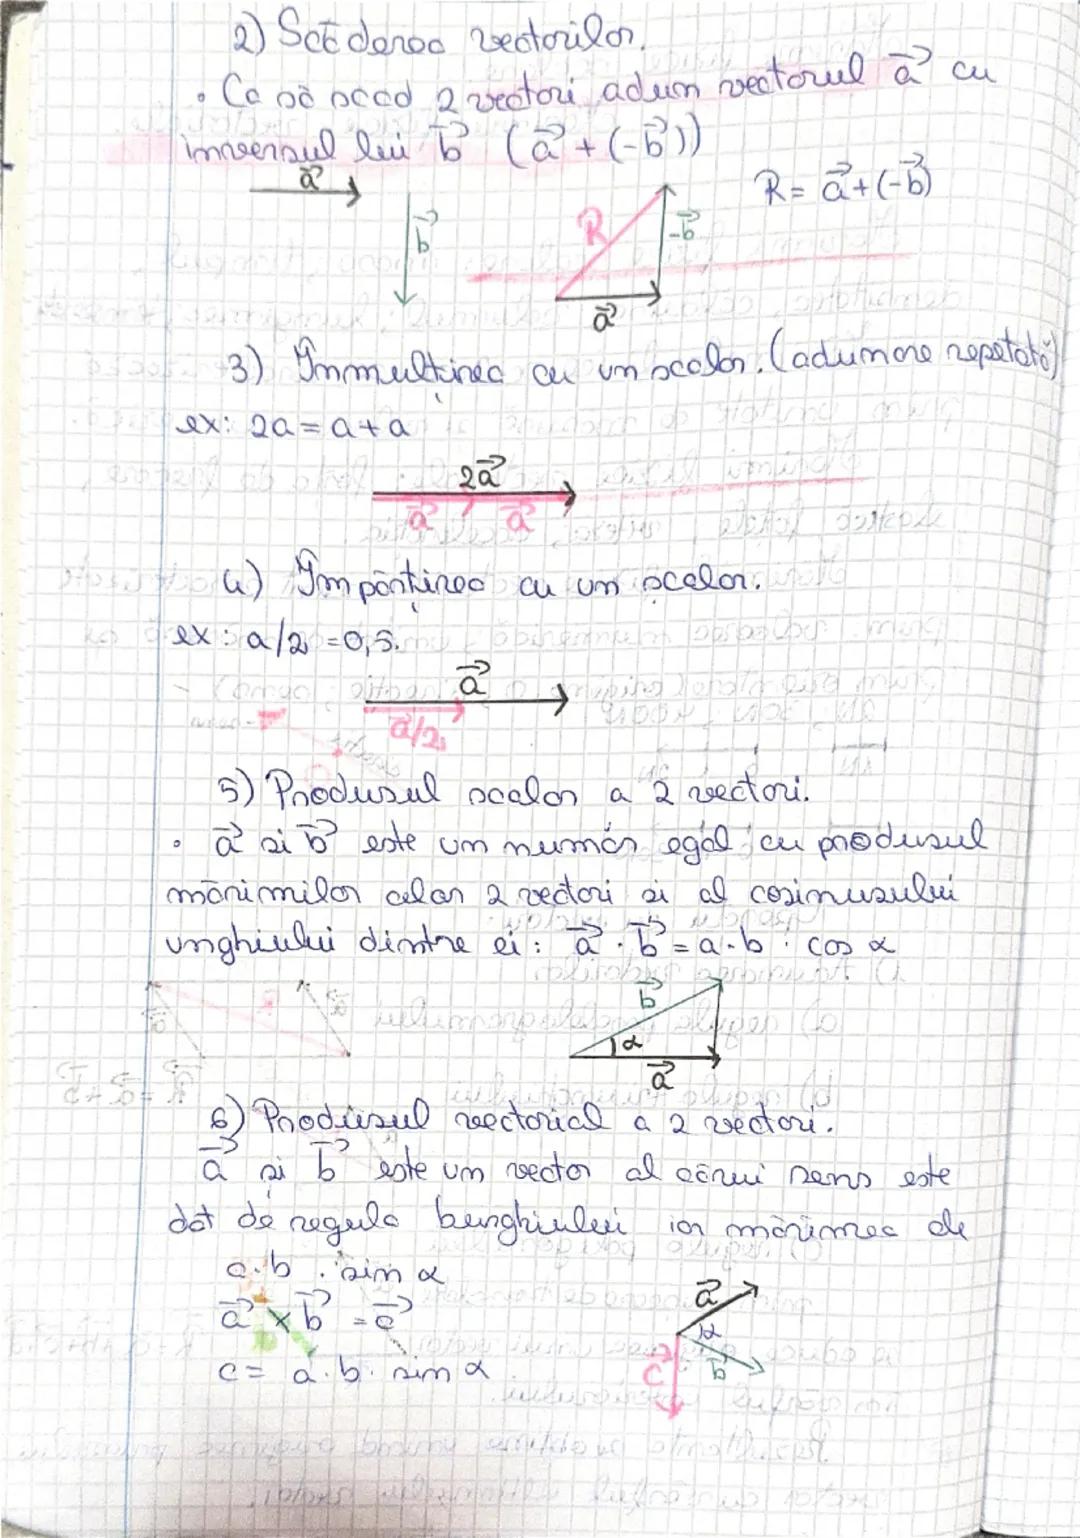 2) Scăderea vectorilor.
• Ca să scad 2 vectori adum vectorul a⃗ cu
inversul lui b⃗ (a⃗ + (-b⃗))
a⃗
R = a⃗ + (-b⃗)
b⃗
R
-b⃗
a⃗
3) Înmulținea cu un scalar. (adunare repetată)
ex: 2a = a + a
2a⃗
a⃗ a⃗
4) Împărțirea cu un scalar.
ex: a/2 = 0,5.
a⃗
a⃗/2
5) Produsul scalar a 2 vectori.
• a⃗ si b⃗ este un număr egal cu produsul
mărimilor celor 2 vectori si al cosinusului
unghiului dintre ei: a⃗ · b⃗ = a · b · cos α
b⃗
α
a⃗
6) Produsul vectorial a 2 vectori.
a⃗ si b⃗ este un vector al cărui sens este
dat de regula burghiului iar mărimea de
a · b · sin α
a⃗ × b⃗ = c⃗
c = a · b · sin α
a⃗
α
b⃗
c⃗